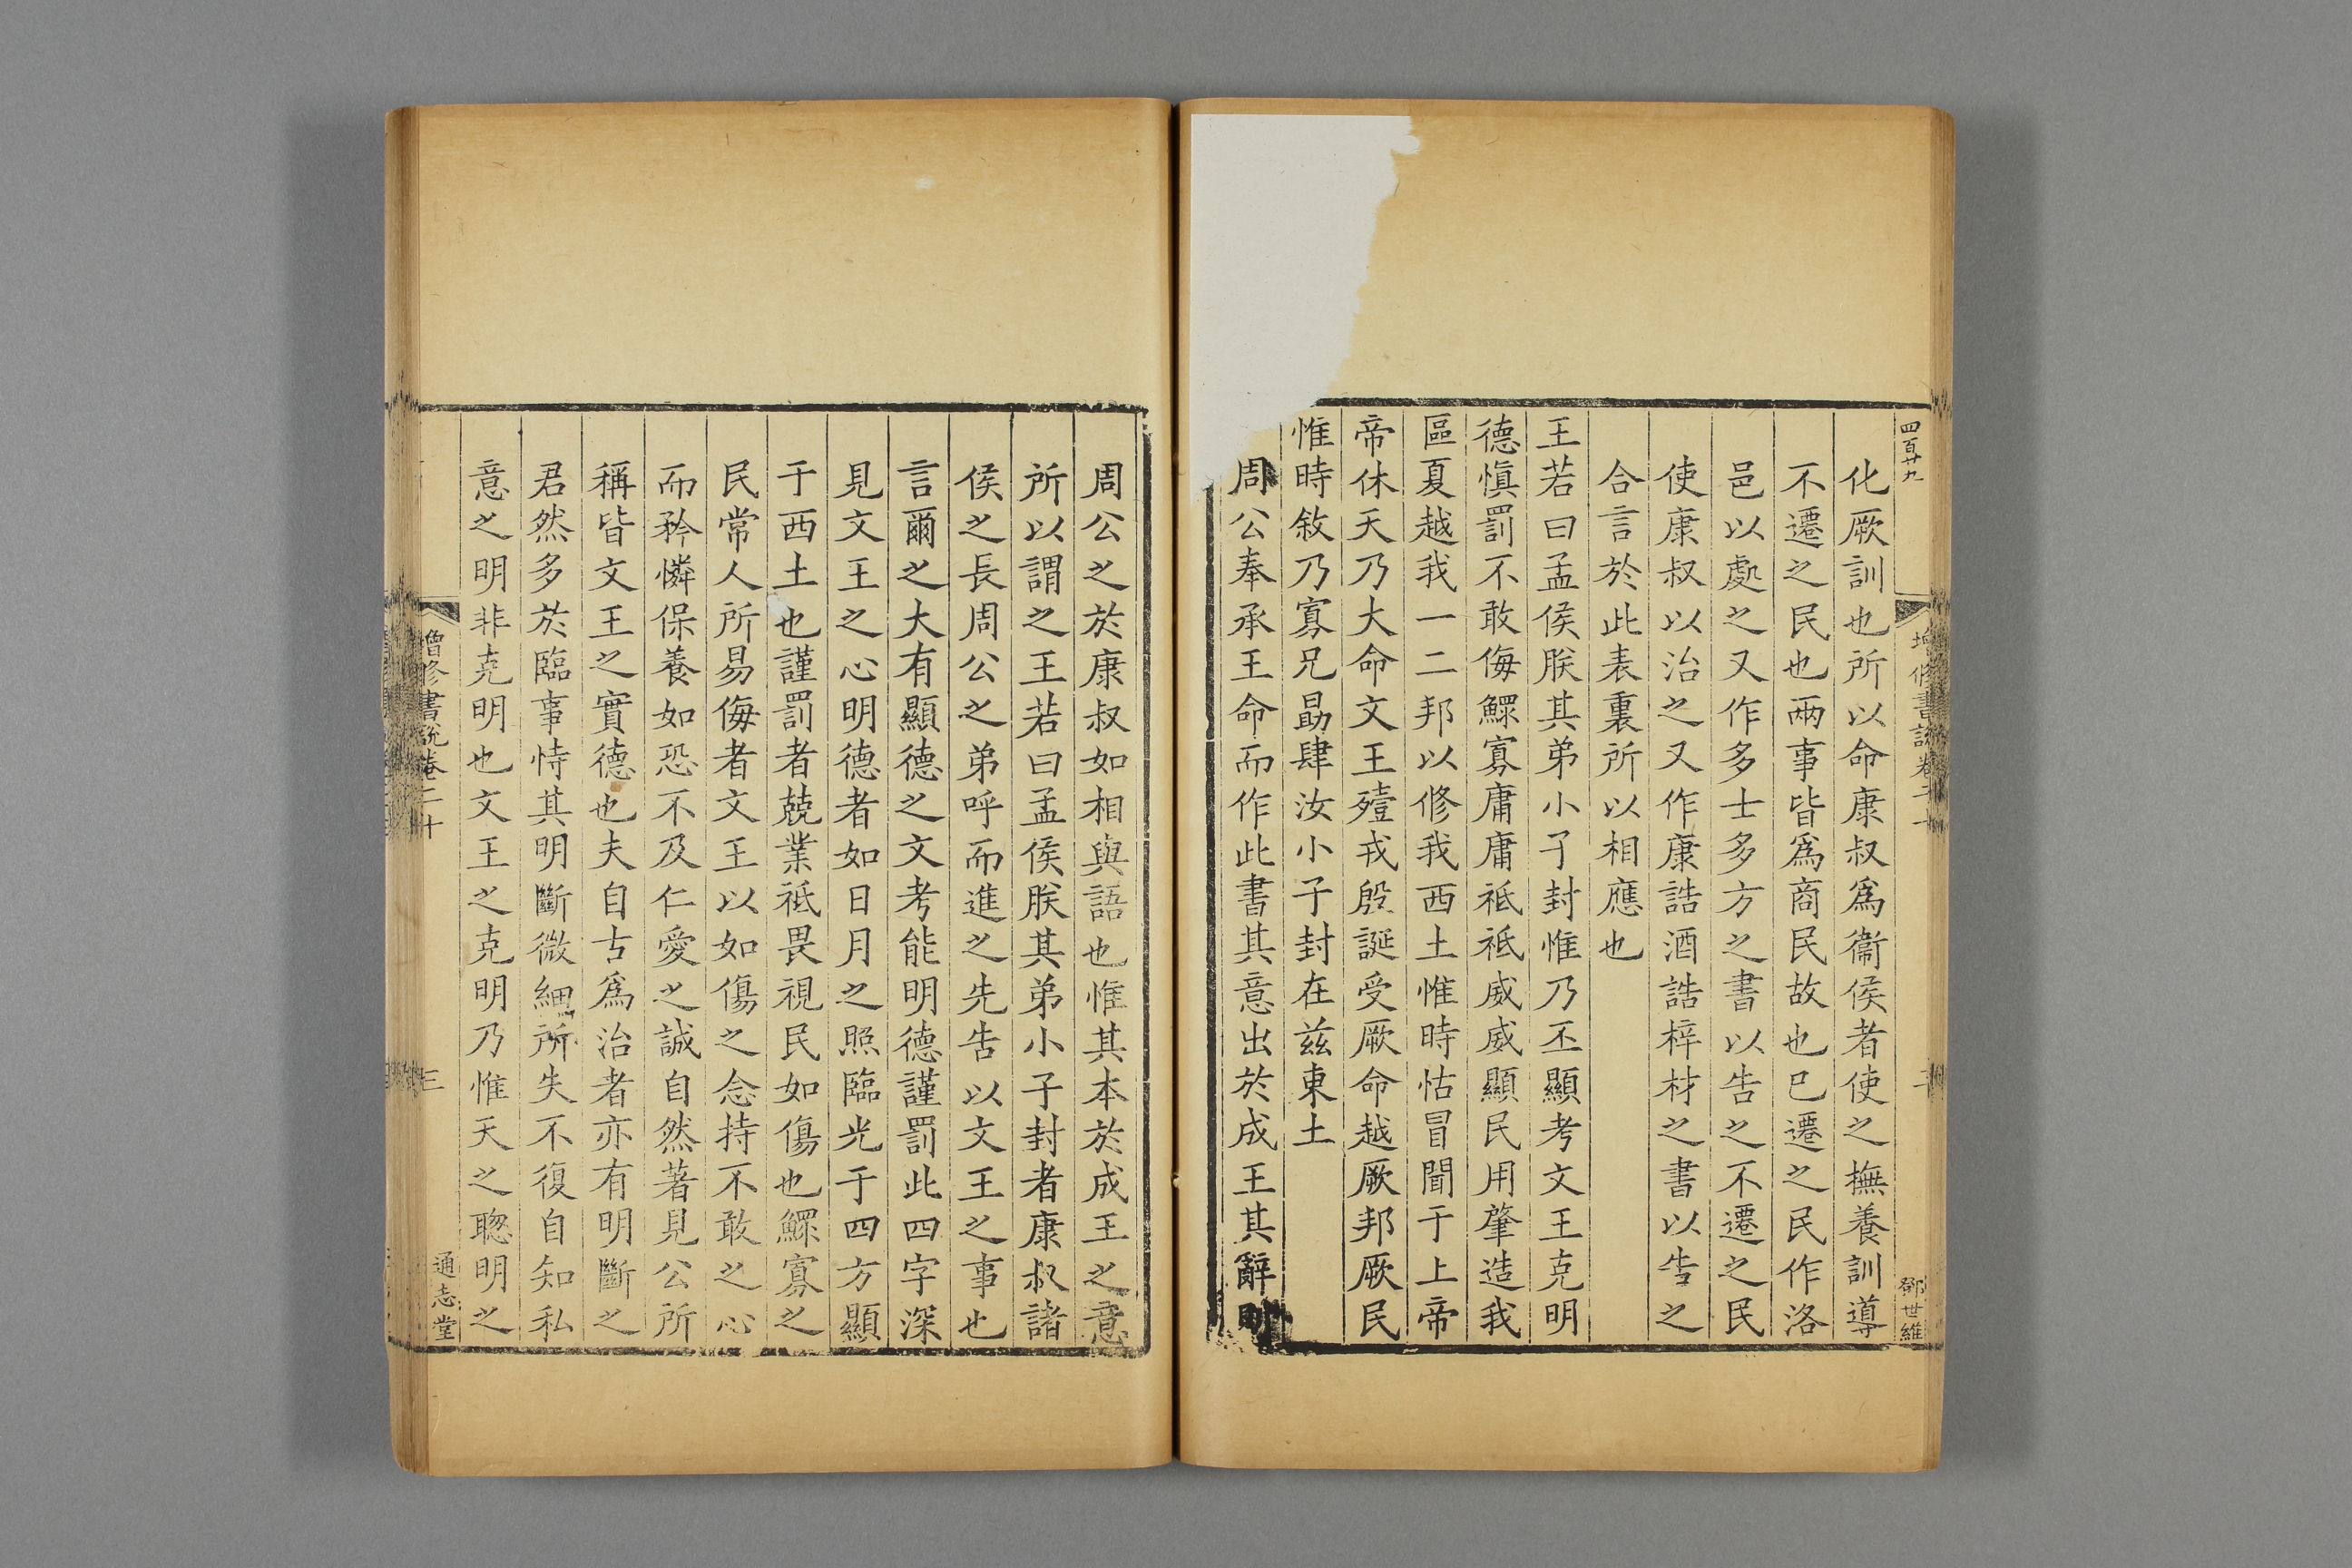 四百廿九
增修書說卷二十
二
鄧世維
化厥訓也所以命康叔爲衞侯者使之撫養訓導
不遷之民也兩事皆爲商民故也已遷之民作洛
邑以處之又作多士多方之書以告之不遷之民
使康叔以治之又作康誥酒誥梓材之書以告之
合言於此表裏所以相應也
王若曰孟侯朕其弟小子封惟乃丕顯考文王克明
德愼罰不敢侮鰥寡庸庸祗祗威威顯民用肇造我
區夏越我一二邦以修我西土惟時怙冒聞于上帝
帝休天乃大命文王殪戎殷誕受厥命越厥邦厥民
惟時敘乃寡兄勗肆汝小子封在茲東土
周公奉承王命而作此書其意出於成王其辭則
周公之於康叔如相與語也惟其本於成王之意
所以謂之王若曰孟侯朕其弟小子封者康叔諸
侯之長周公之弟呼而進之先告以文王之事也
言爾之大有顯德之文考能明德謹罰此四字深
見文王之心明德者如日月之照臨光于四方顯
于西土也謹罰者兢業祗畏視民如傷也鰥寡之
民常人所易侮者文王以如傷之念持不敢之心
而矜憐保養如恐不及仁愛之誠自然著見公所
稱皆文王之實德也夫自古爲治者亦有明斷之
君然多於臨事恃其明斷微細所失不復自知私
意之明非克明也文王之克明乃惟天之聰明之
增修書說卷二十
三
通志堂